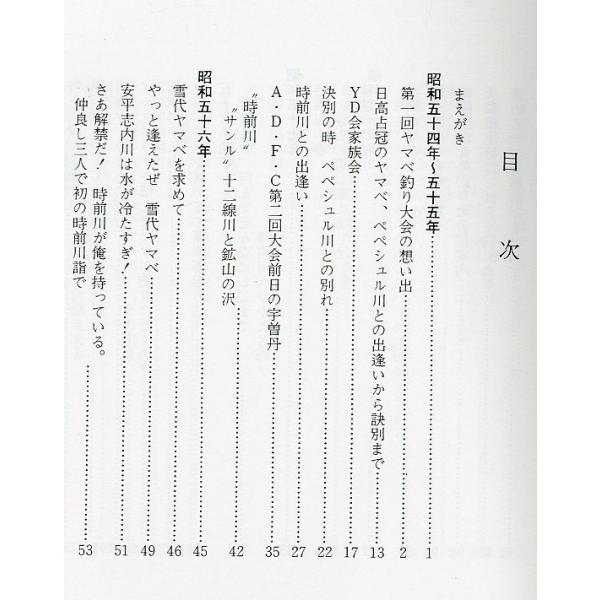 目次
まえがき
昭和五十四年～五十五年 1
第一回ヤマベ釣り大会の想い出 2
日高占冠のヤマベ、ペペシュル川との出逢いから訣別まで 13
ＹＤ会家族会 17
決別の時　ペペシュル川との別れ 22
時前川との出逢い 27
Ａ・Ｄ・Ｆ・Ｃ第二回大会前日の宇曽丹 35
〝時前川〟
〝サンル〟十二線川と鉱山の沢 42
昭和五十六年 45
雪代ヤマベを求めて 46
やっと逢えたぜ　雪代ヤマベ 49
安平志内川は水が冷たすぎ！ 51
さあ解禁だ！　時前川が俺を持っている。
仲良し三人で初の時前川詣で 53